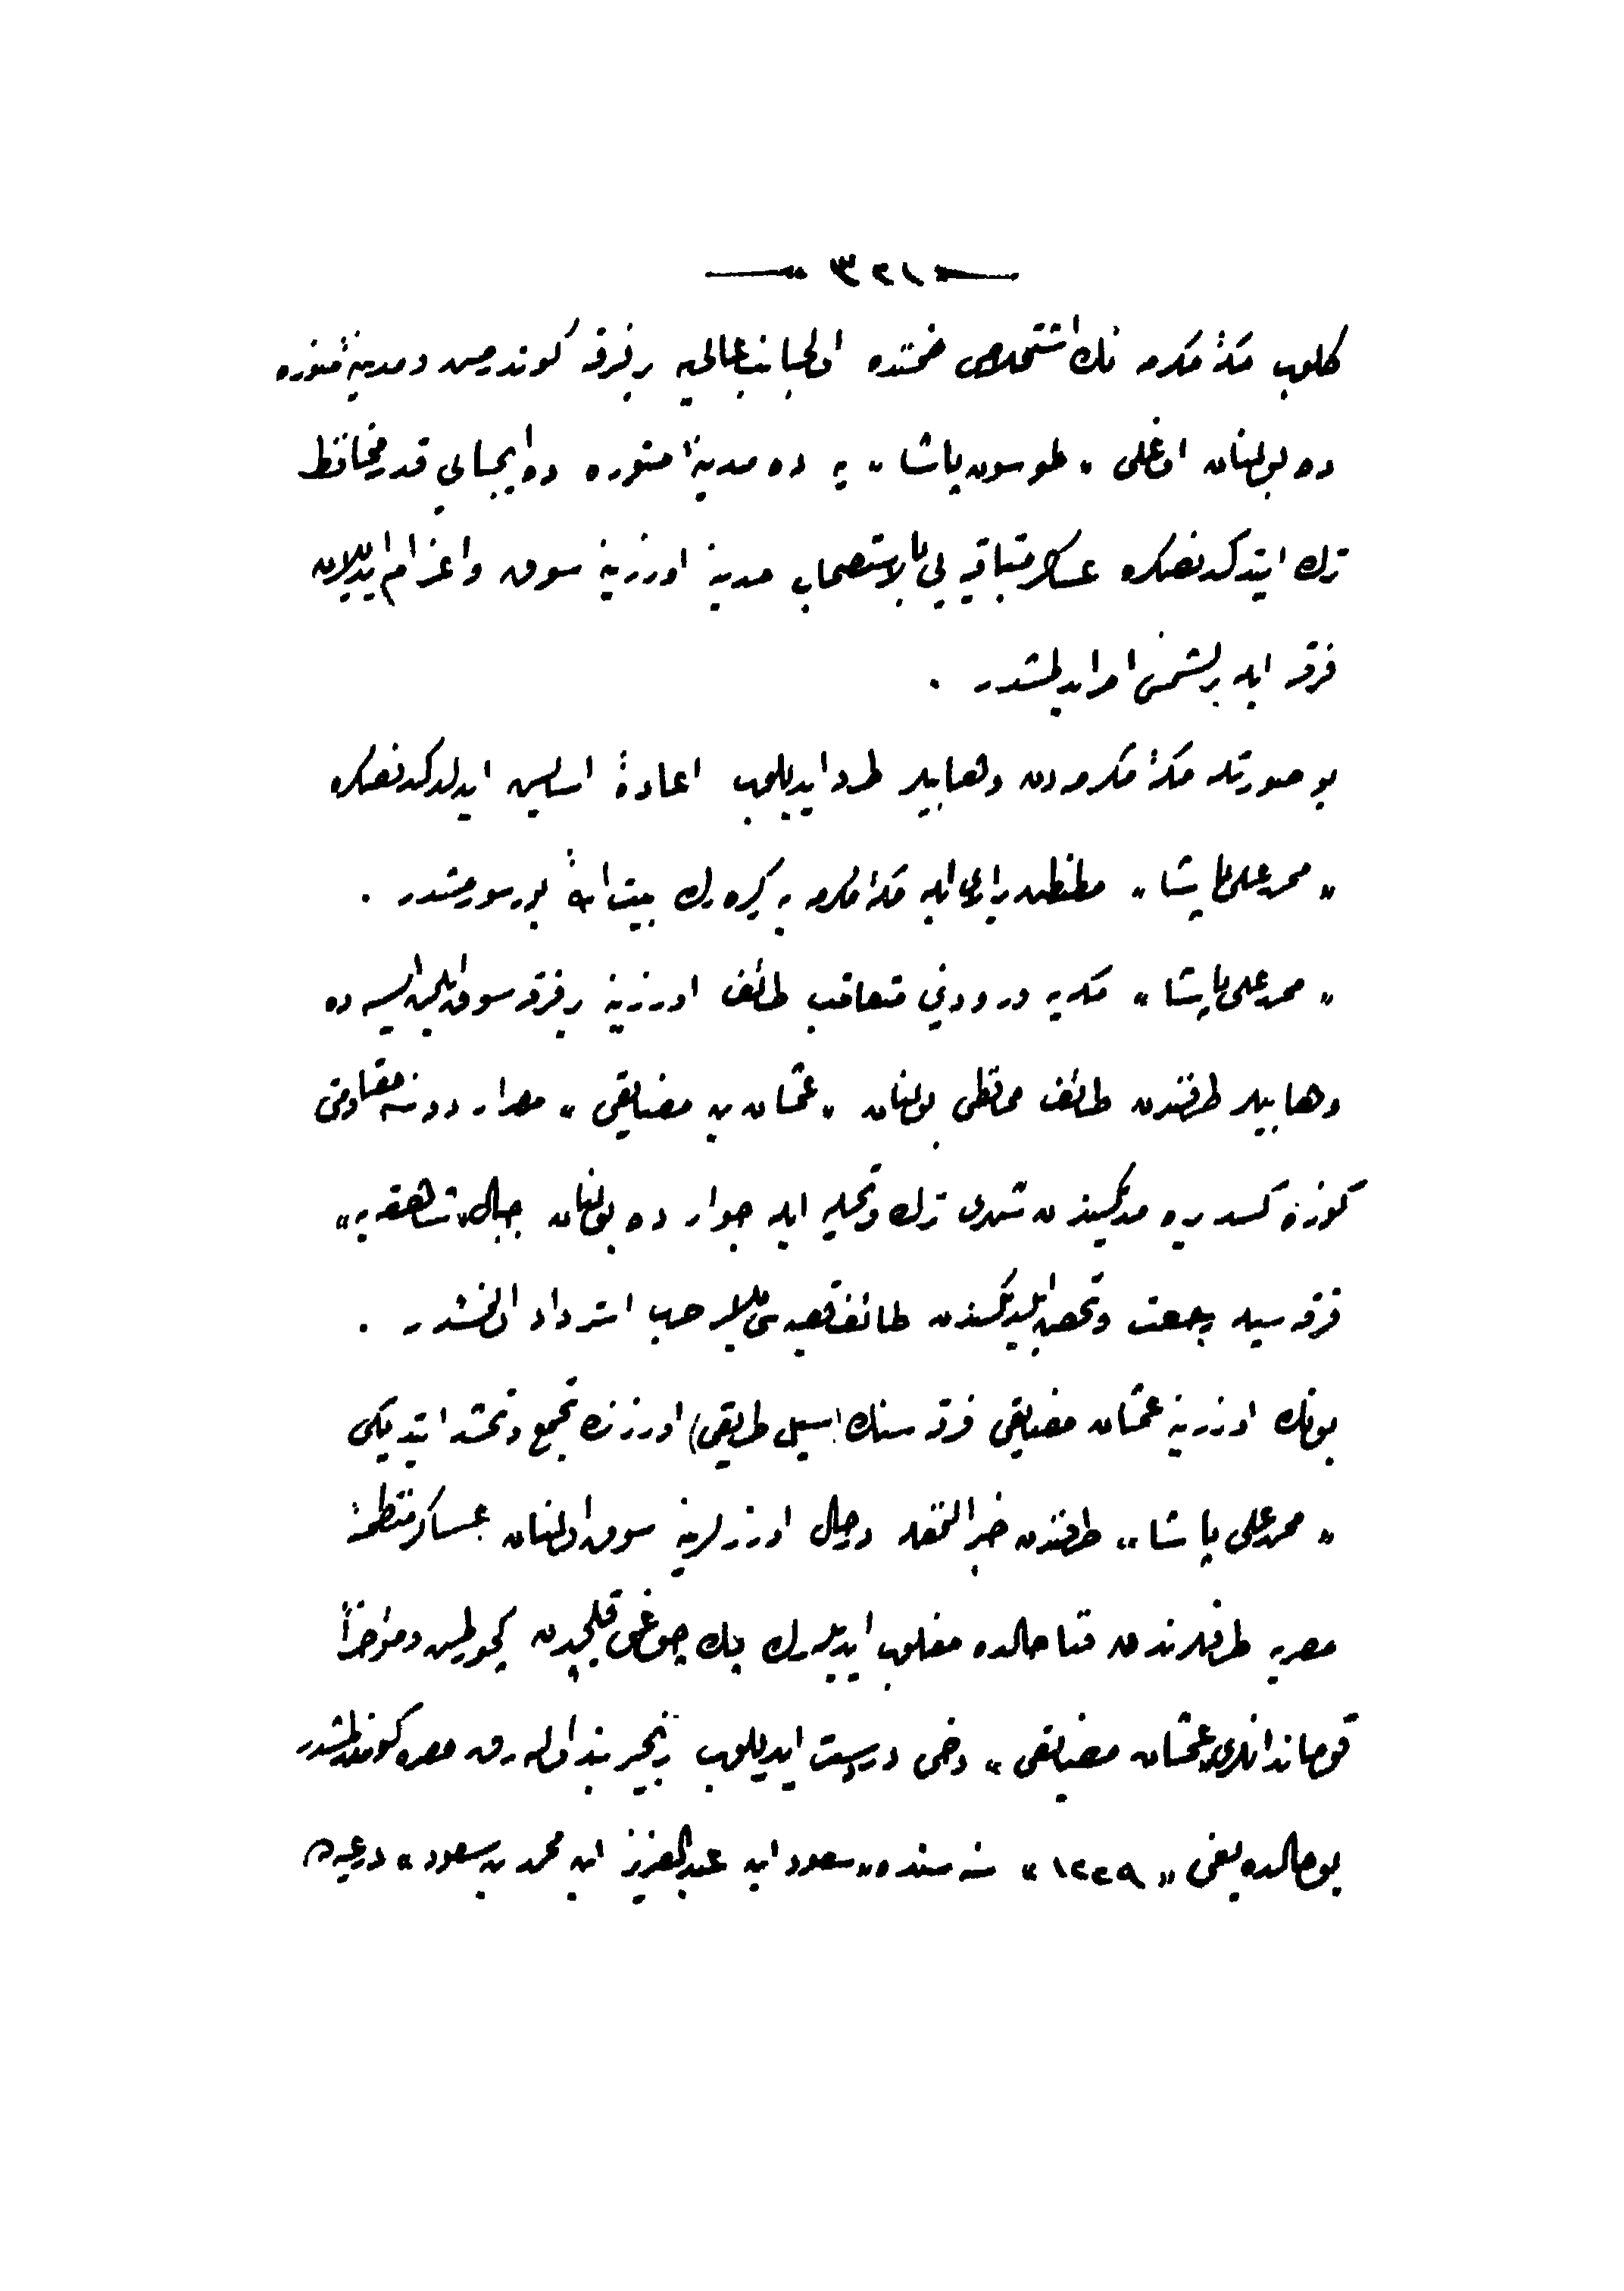 ٣٢١
كلوب مكۀ مكرمه نك استخلاصی ضمننده اول جانب عالی‌یه بر فرقه كوندرمس و مدینۀ منوره
ده بولنان اوغلی « طوسون پاشا » یه ده مدینۀ منوره ده ایجابی قدر محافظ
ترك ایتدكدنصكره عساكر متباقیه یی بالاستصحاب مدینه اوزرینه سوق و اعزام ایدیلان
فرقه ایله برلشمسنی امر ایدلمشدر .
بو صورتله مكۀ مكرمه دن وهابیلر طرد ایدیلوب اعادۀ اسایش ایدلدكدنصكره
« محمد علی پاشا » مطنطن بر الای ایله مكۀ مكرمه یه كیره رك بیت اللهه یوز سورمشدر .
« محمد علی پاشا » مكه یه ورودینی متعاقب طائف اوزرینه بر فرقه سوق ایلمس ایسه ده
وهابیلر طرفندن طائف محافظی بولنان « عثمان بن مضایفی » مصرار دوسنه مقاومتی
كوزه كسدیره مدیكندن شهری ترك و تخلیه ایله جوار ده بولنان جبال « شاهقه یه »
فرقه سیله رجعت و تحصن ایلدیكندن طائف قصبه سی بلا حرب استرداد اولنمشدر .
بونك اوزرینه عثمان مضایفی فرقه سنك (سیل طریقی) اوزرنده تجمع و تحشد ایتدیكی
« محمد علی پاشا » طرفندن خبر النمغله درحال اوزرلرینه سوق اولنان عساكر منتظمۀ
مصریه طرفلرندن فنا حالده مغلوب ایدیله رك پك چوغی قلیچدن كچورلمس و مؤخراً
قوماندانلری « عثمان مضایفی » دخی دردست ایدیلوب زنجیر بند اوله رق مصره كوندرلمشدر
بو حالده یعنی « ١٢٢٩ » سنه سنده « سعود ابن عبدالعزیز ابن محمد بن سعود » درعیه ده